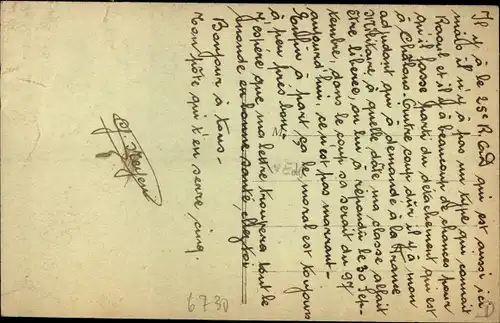 Il y à le 25e R. G. D qui est aussi ici
mais il n'y à pas un type qui connait
Raoul et il y à beaucoup de chances pour
qu'il fasse parti du détachement qui est
à Châlons. Contre coup dur il y à mon
adjudant qui à demandé à la France
militaire, à quelle date ma classe allait
être libérée, on lui à répondu le 30 Sep-
tembre, dans le coup sa serait du 97
aujourd'hui, ce n'est pas marrant -
Enfin à part ça le moral est toujours
à peu près bon -
J'espère que ma lettre trouvera tout le
monde en bonne santé, chez toi
Bonjour à tous -
Ton pôte qui t'en serre, cinq.
6730